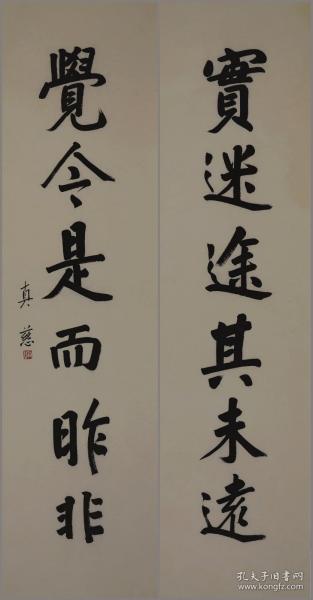 實迷途其未遠
覺今是而昨非
真慈
孔夫子旧书网
www.kongfz.com